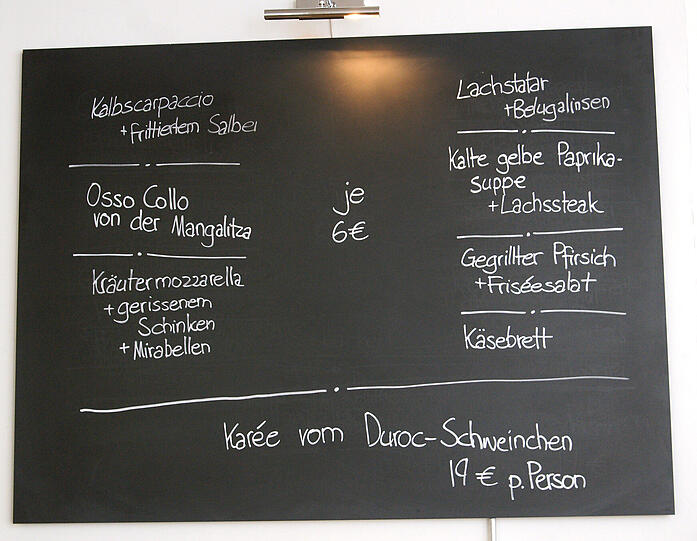 Kalbscarpaccio
+ frittiertem Salbei
Osso Collo
von der Mangalitza
Kräutermozzarella
+ gerissenem
Schinken
+ Mirabellen
je
6€
Lachstatar
+ Belugalinsen
Kalte gelbe Paprika-
suppe
+ Lachssteak
Gegrillter Pfirsich
+ Friséesalat
Käsebrett
Karée vom Duroc-Schweinchen
19 € p. Person